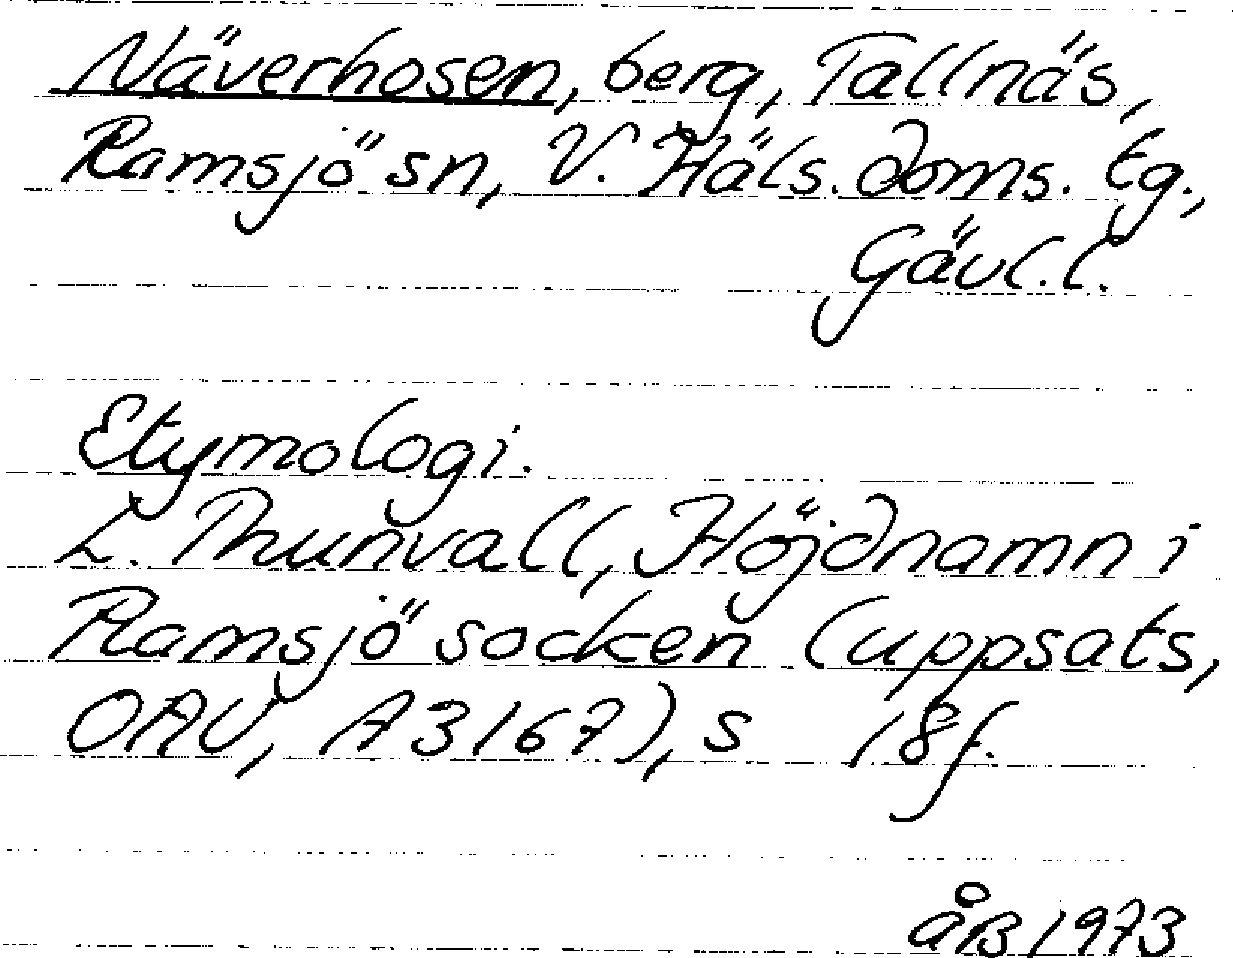 Näverhosen, berg, Tallnäs,
Ramsjö sn, V. Häls. doms. tg.,
Gävl. l.
Etymologi.
L. Thunvall, Höjdnamn i
Ramsjö socken (uppsats,
OAU, A3167), s 18f.
åB 1973